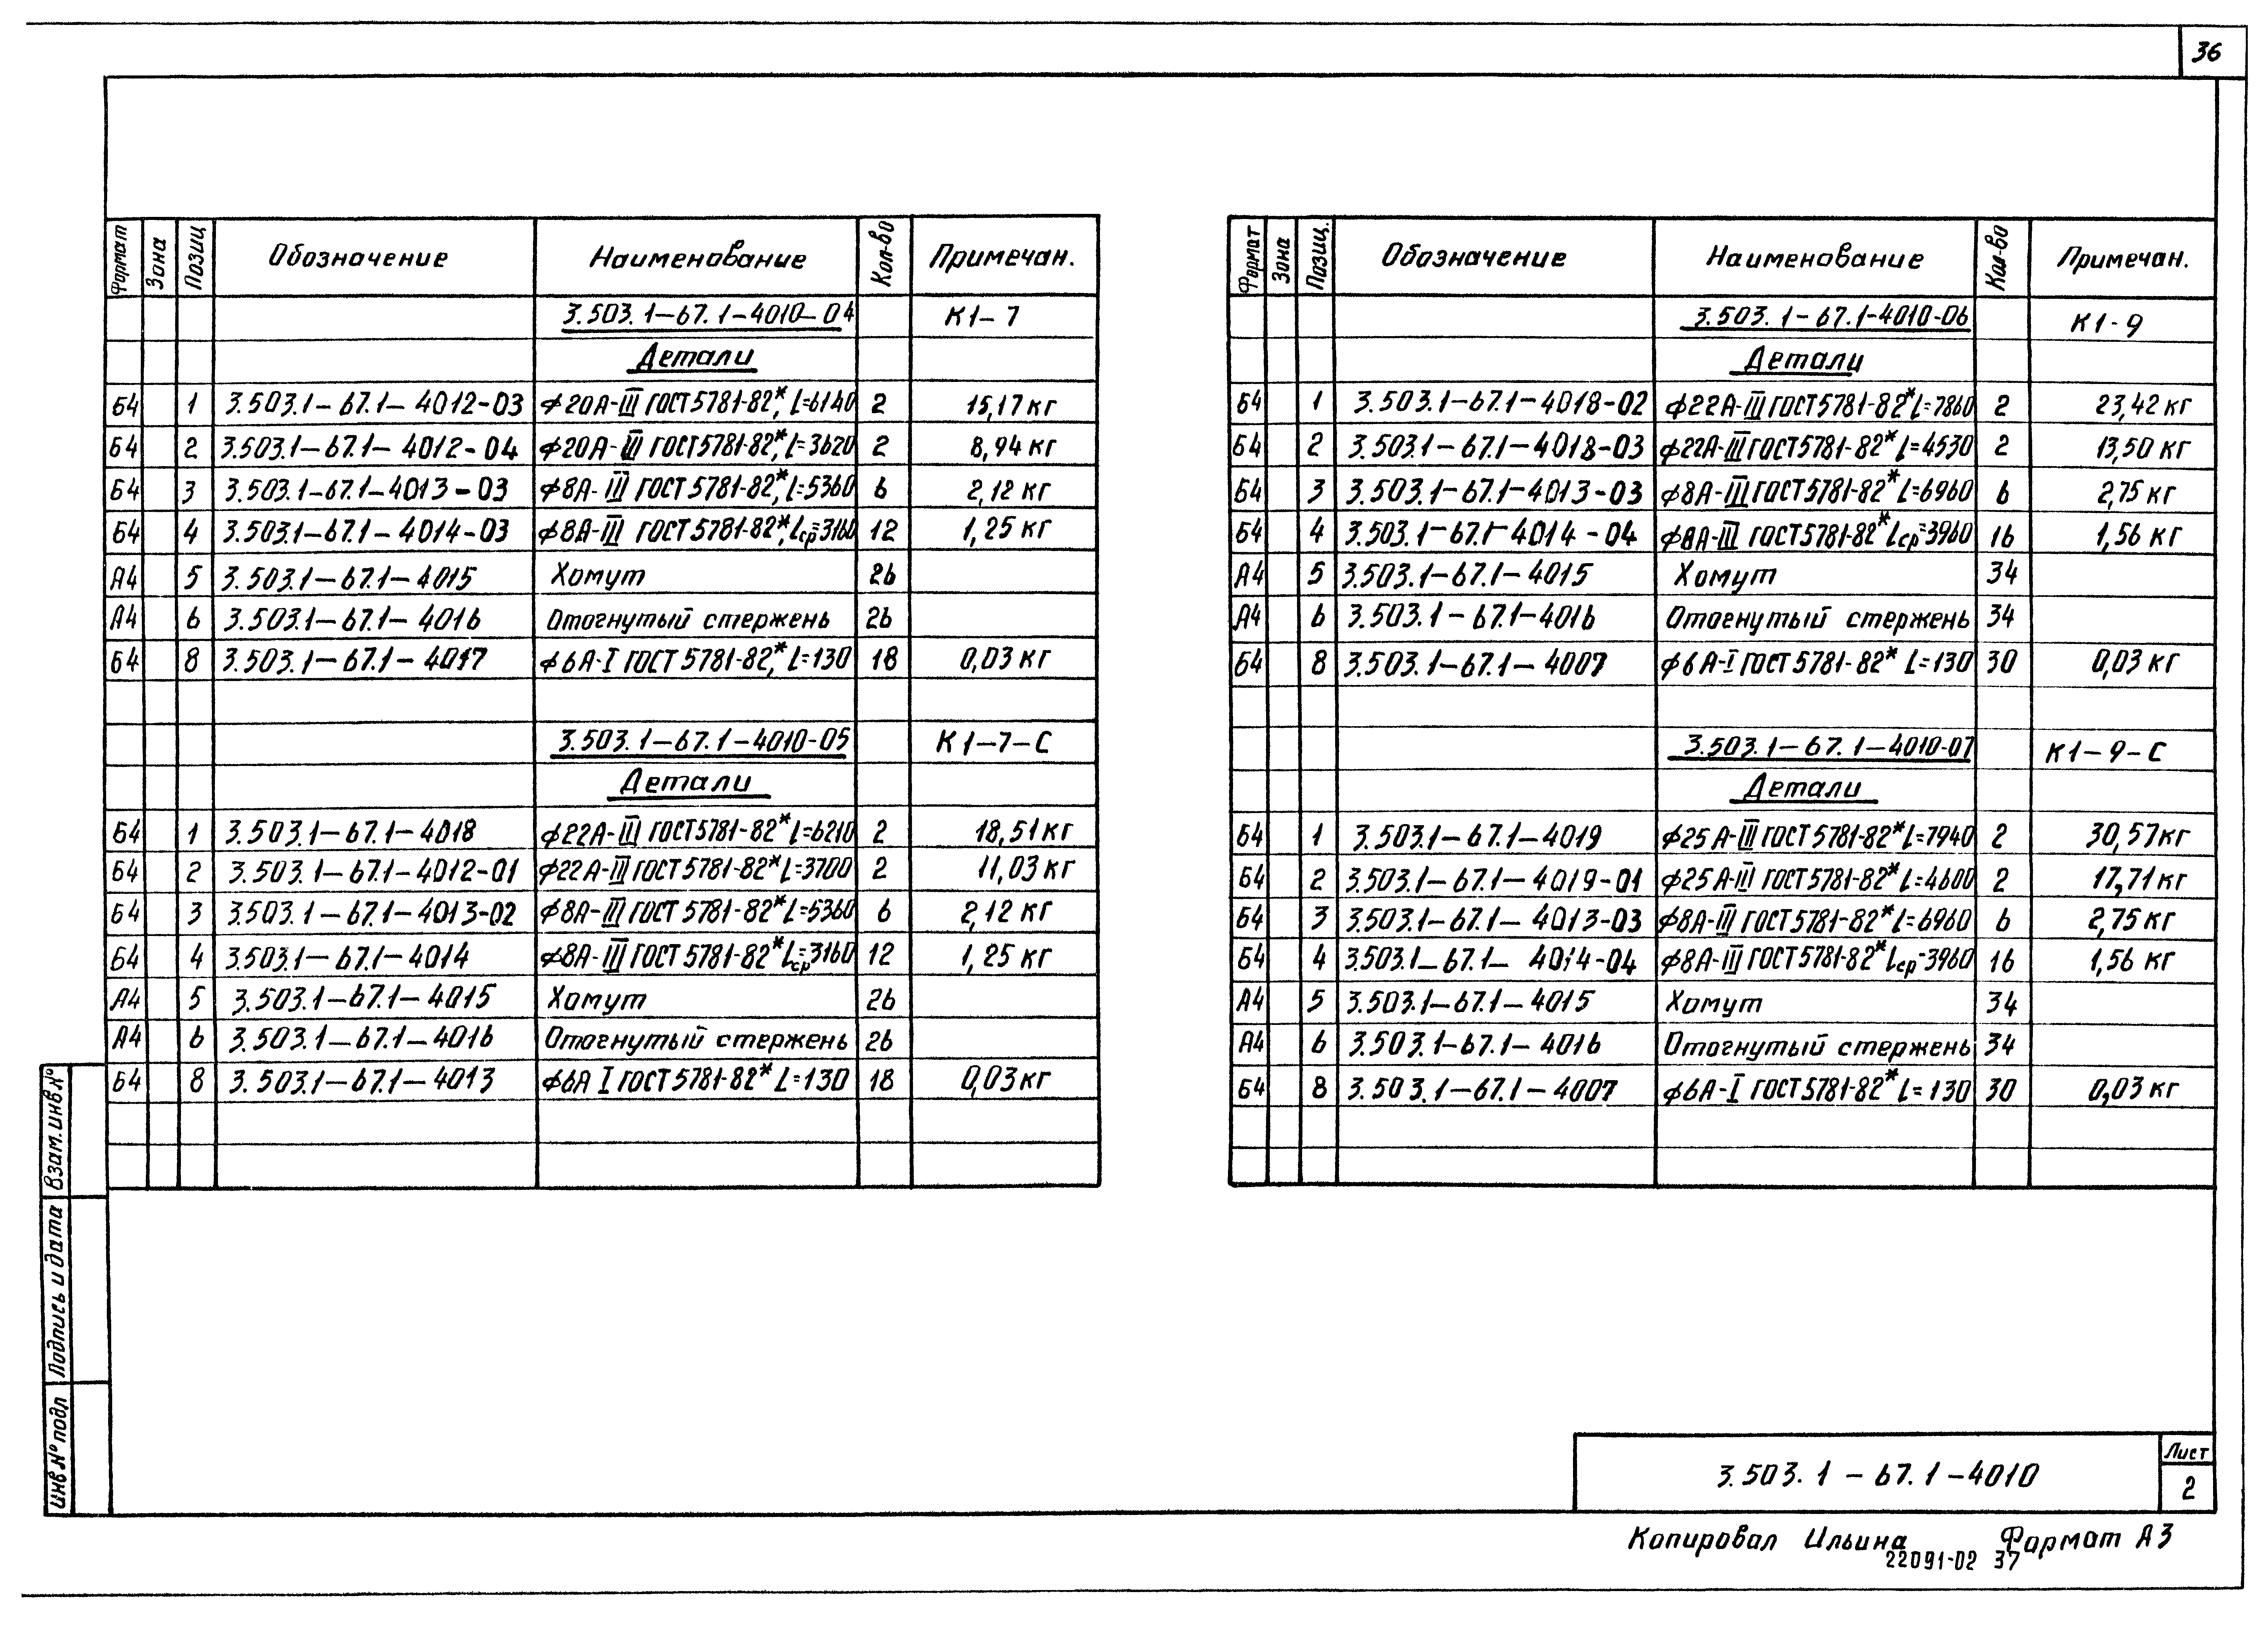 36
Формат Зона Позиц Обозначение Наименование Кол-во Примечан.
3.503.1-67.1-4010-04 К1-7
Детали
Б4 1 3.503.1-67.1-4012-03 ф20А-III ГОСТ 5781-82*, L=6140 2 15,17 кг
Б4 2 3.503.1-67.1-4012-04 ф20А-III ГОСТ 5781-82*, L=3620 2 8,94 кг
Б4 3 3.503.1-67.1-4013-03 ф8А-III ГОСТ 5781-82*, L=5360 6 2,12 кг
Б4 4 3.503.1-67.1-4014-03 ф8А-III ГОСТ 5781-82*, Lср=3160 12 1,25 кг
А4 5 3.503.1-67.1-4015 Хомут 26
А4 6 3.503.1-67.1-4016 Отогнутый стержень 26
Б4 8 3.503.1-67.1-4017 ф6А-I ГОСТ 5781-82*, L=130 18 0,03 кг
3.503.1-67.1-4010-05 К1-7-С
Детали
Б4 1 3.503.1-67.1-4018 ф22А-III ГОСТ 5781-82* L=6210 2 18,51 кг
Б4 2 3.503.1-67.1-4012-01 ф22А-III ГОСТ 5781-82* L=3700 2 11,03 кг
Б4 3 3.503.1-67.1-4013-02 ф8А-III ГОСТ 5781-82* L=5360 6 2,12 кг
Б4 4 3.503.1-67.1-4014 ф8А-III ГОСТ 5781-82* Lср=3160 12 1,25 кг
А4 5 3.503.1-67.1-4015 Хомут 26
А4 6 3.503.1-67.1-4016 Отогнутый стержень 26
Б4 8 3.503.1-67.1-4013 ф6А I ГОСТ 5781-82* L=130 18 0,03 кг
Формат Зона Позиц. Обозначение Наименование Кол-во Примечан.
3.503.1-67.1-4010-06 К1-9
Детали
Б4 1 3.503.1-67.1-4018-02 ф22А-III ГОСТ 5781-82* L=7860 2 23,42 кг
Б4 2 3.503.1-67.1-4018-03 ф22А-III ГОСТ 5781-82* L=4530 2 13,50 кг
Б4 3 3.503.1-67.1-4013-03 ф8А-III ГОСТ 5781-82* L=6960 6 2,75 кг
Б4 4 3.503.1-67.1-4014-04 ф8А-III ГОСТ 5781-82* Lср=3960 16 1,56 кг
А4 5 3.503.1-67.1-4015 Хомут 34
А4 6 3.503.1-67.1-4016 Отогнутый стержень 34
Б4 8 3.503.1-67.1-4007 ф6А-I ГОСТ 5781-82* L=130 30 0,03 кг
3.503.1-67.1-4010-07 К1-9-С
Детали
Б4 1 3.503.1-67.1-4019 ф25А-III ГОСТ 5781-82* L=7940 2 30,57 кг
Б4 2 3.503.1-67.1-4019-01 ф25А-III ГОСТ 5781-82* L=4600 2 17,71 кг
Б4 3 3.503.1-67.1-4013-03 ф8А-III ГОСТ 5781-82* L=6960 6 2,75 кг
Б4 4 3.503.1-67.1-4014-04 ф8А-III ГОСТ 5781-82* Lср-3960 16 1,56 кг
А4 5 3.503.1-67.1-4015 Хомут 34
А4 6 3.503.1-67.1-4016 Отогнутый стержень 34
Б4 8 3.503.1-67.1-4007 ф6А-I ГОСТ 5781-82* L=130 30 0,03 кг
Взам.инв.N°
Подпись и дата
инв.N° подл
3.503.1-67.1-4010
Лист
2
Копировал Ильина Формат А3
22091-02 37